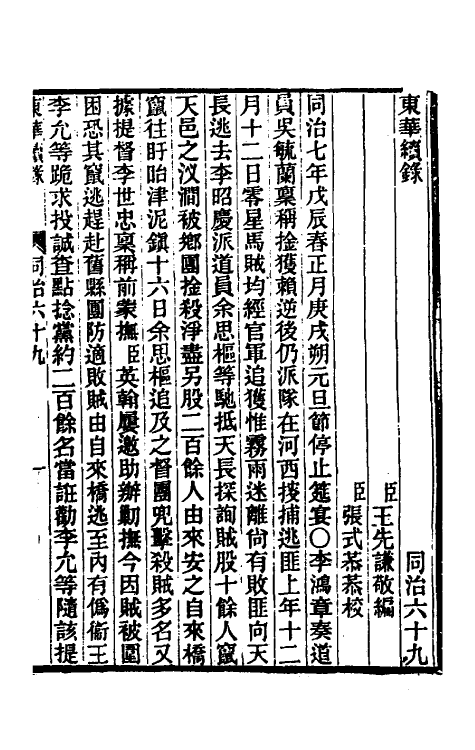 東華續錄
同治六十九
臣王先謙敬編
臣張式恭恭校
同治七年戊辰春正月庚戌朔元旦節停止筵宴〇李鴻章奏道
員吳毓蘭稟稱捦獲賴逆後仍派隊在河西搜捕逃匪上年十二
月十二日零星馬賊均經官軍追獲惟霧雨迷離尙有敗匪向天
長逃去李昭慶派道員余思樞等馳抵天長探詢賊股十餘人竄
天邑之汊澗被鄉團捦殺淨盡另股二百餘人由來安之自來橋
竄往盱眙津泥鎭十六日余思樞追及之督團兜擊殺賊多名又
據提督李世忠稟稱前蒙撫臣英翰屢邀助辦勦撫今因賊被圍
困恐其竄逃趕赴舊縣團防適敗賊由自來橋逃至內有僞衞王
李允等跪求投誠查點捻黨約二百餘名當誑勸李允等隨該提
東華續錄
同治六十九
一